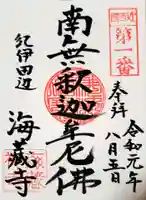 第一番
奉拝
令和元年
八月五日
南無釈迦牟尼佛
紀伊田辺
海蔵寺